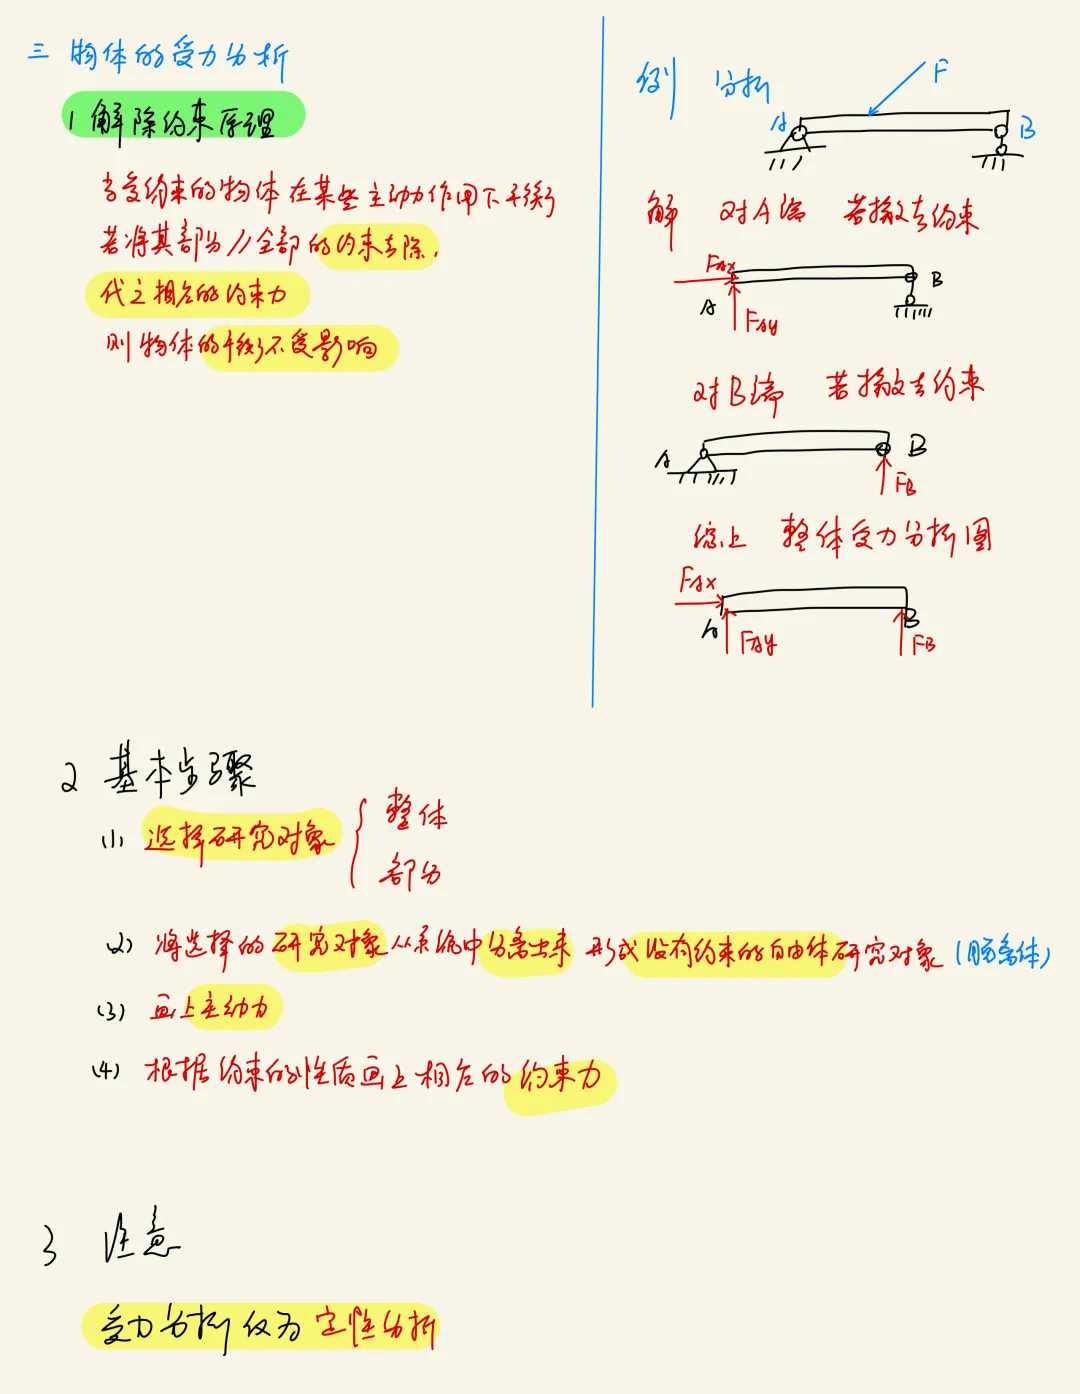 三 物体的受力分析
1 解除约束原理
当受约束的物体在某些主动力作用下平衡
若将其部分//全部的约束去除,
代之相应的约束力
则物体的平衡不受影响
例 分析
F
A
B
解 对A端 若撤去约束
FAx
B
A
FAy
对B端 若撤去约束
A
B
FB
综上 整体受力分析图
FAx
A
B
FAy
FB
2 基本步骤
(1) 选择研究对象 { 整体
部分
(2) 将选择的研究对象从系统中分离出来 形成没有约束的自由体研究对象 (隔离体)
(3) 画上主动力
(4) 根据约束的性质画上相应的约束力
3 注意
受力分析仅为定性分析